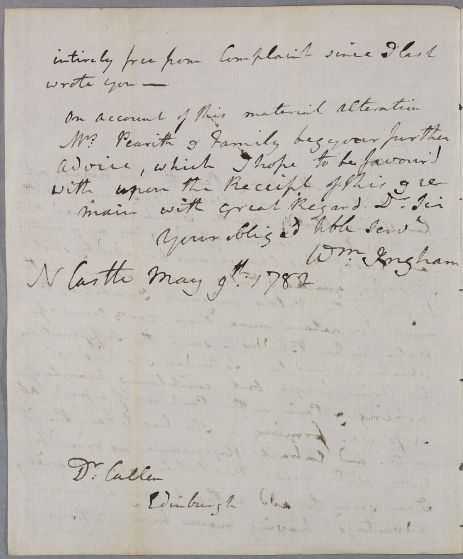 intirely free from Complaint since I last
wrote you —
on account of this material alteration
Mrs. Pearith & Family beg your further
Advice, which I hope to be favour'd
with upon the Receipt of this & re
main with great Regard Dr. Sir
Your oblig'd hble servt.
Wm. Ingham
N Castle May 9th. 1782
Dr. Cullen
Edinburgh